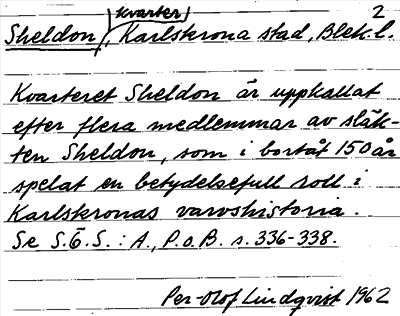 2
kvarter
Sheldon, Karlskrona stad, Blek. l.
Kvarteret Sheldon är uppkallat
efter flera medlemmar av släk-
ten Sheldon, som i bortåt 150 år
spelat en betydelsefull roll i
Karlskronas varvshistoria.
Se S.Ö.S.: A., P.o.B. s. 336-338.
Per-Olof Lindqvist 1962